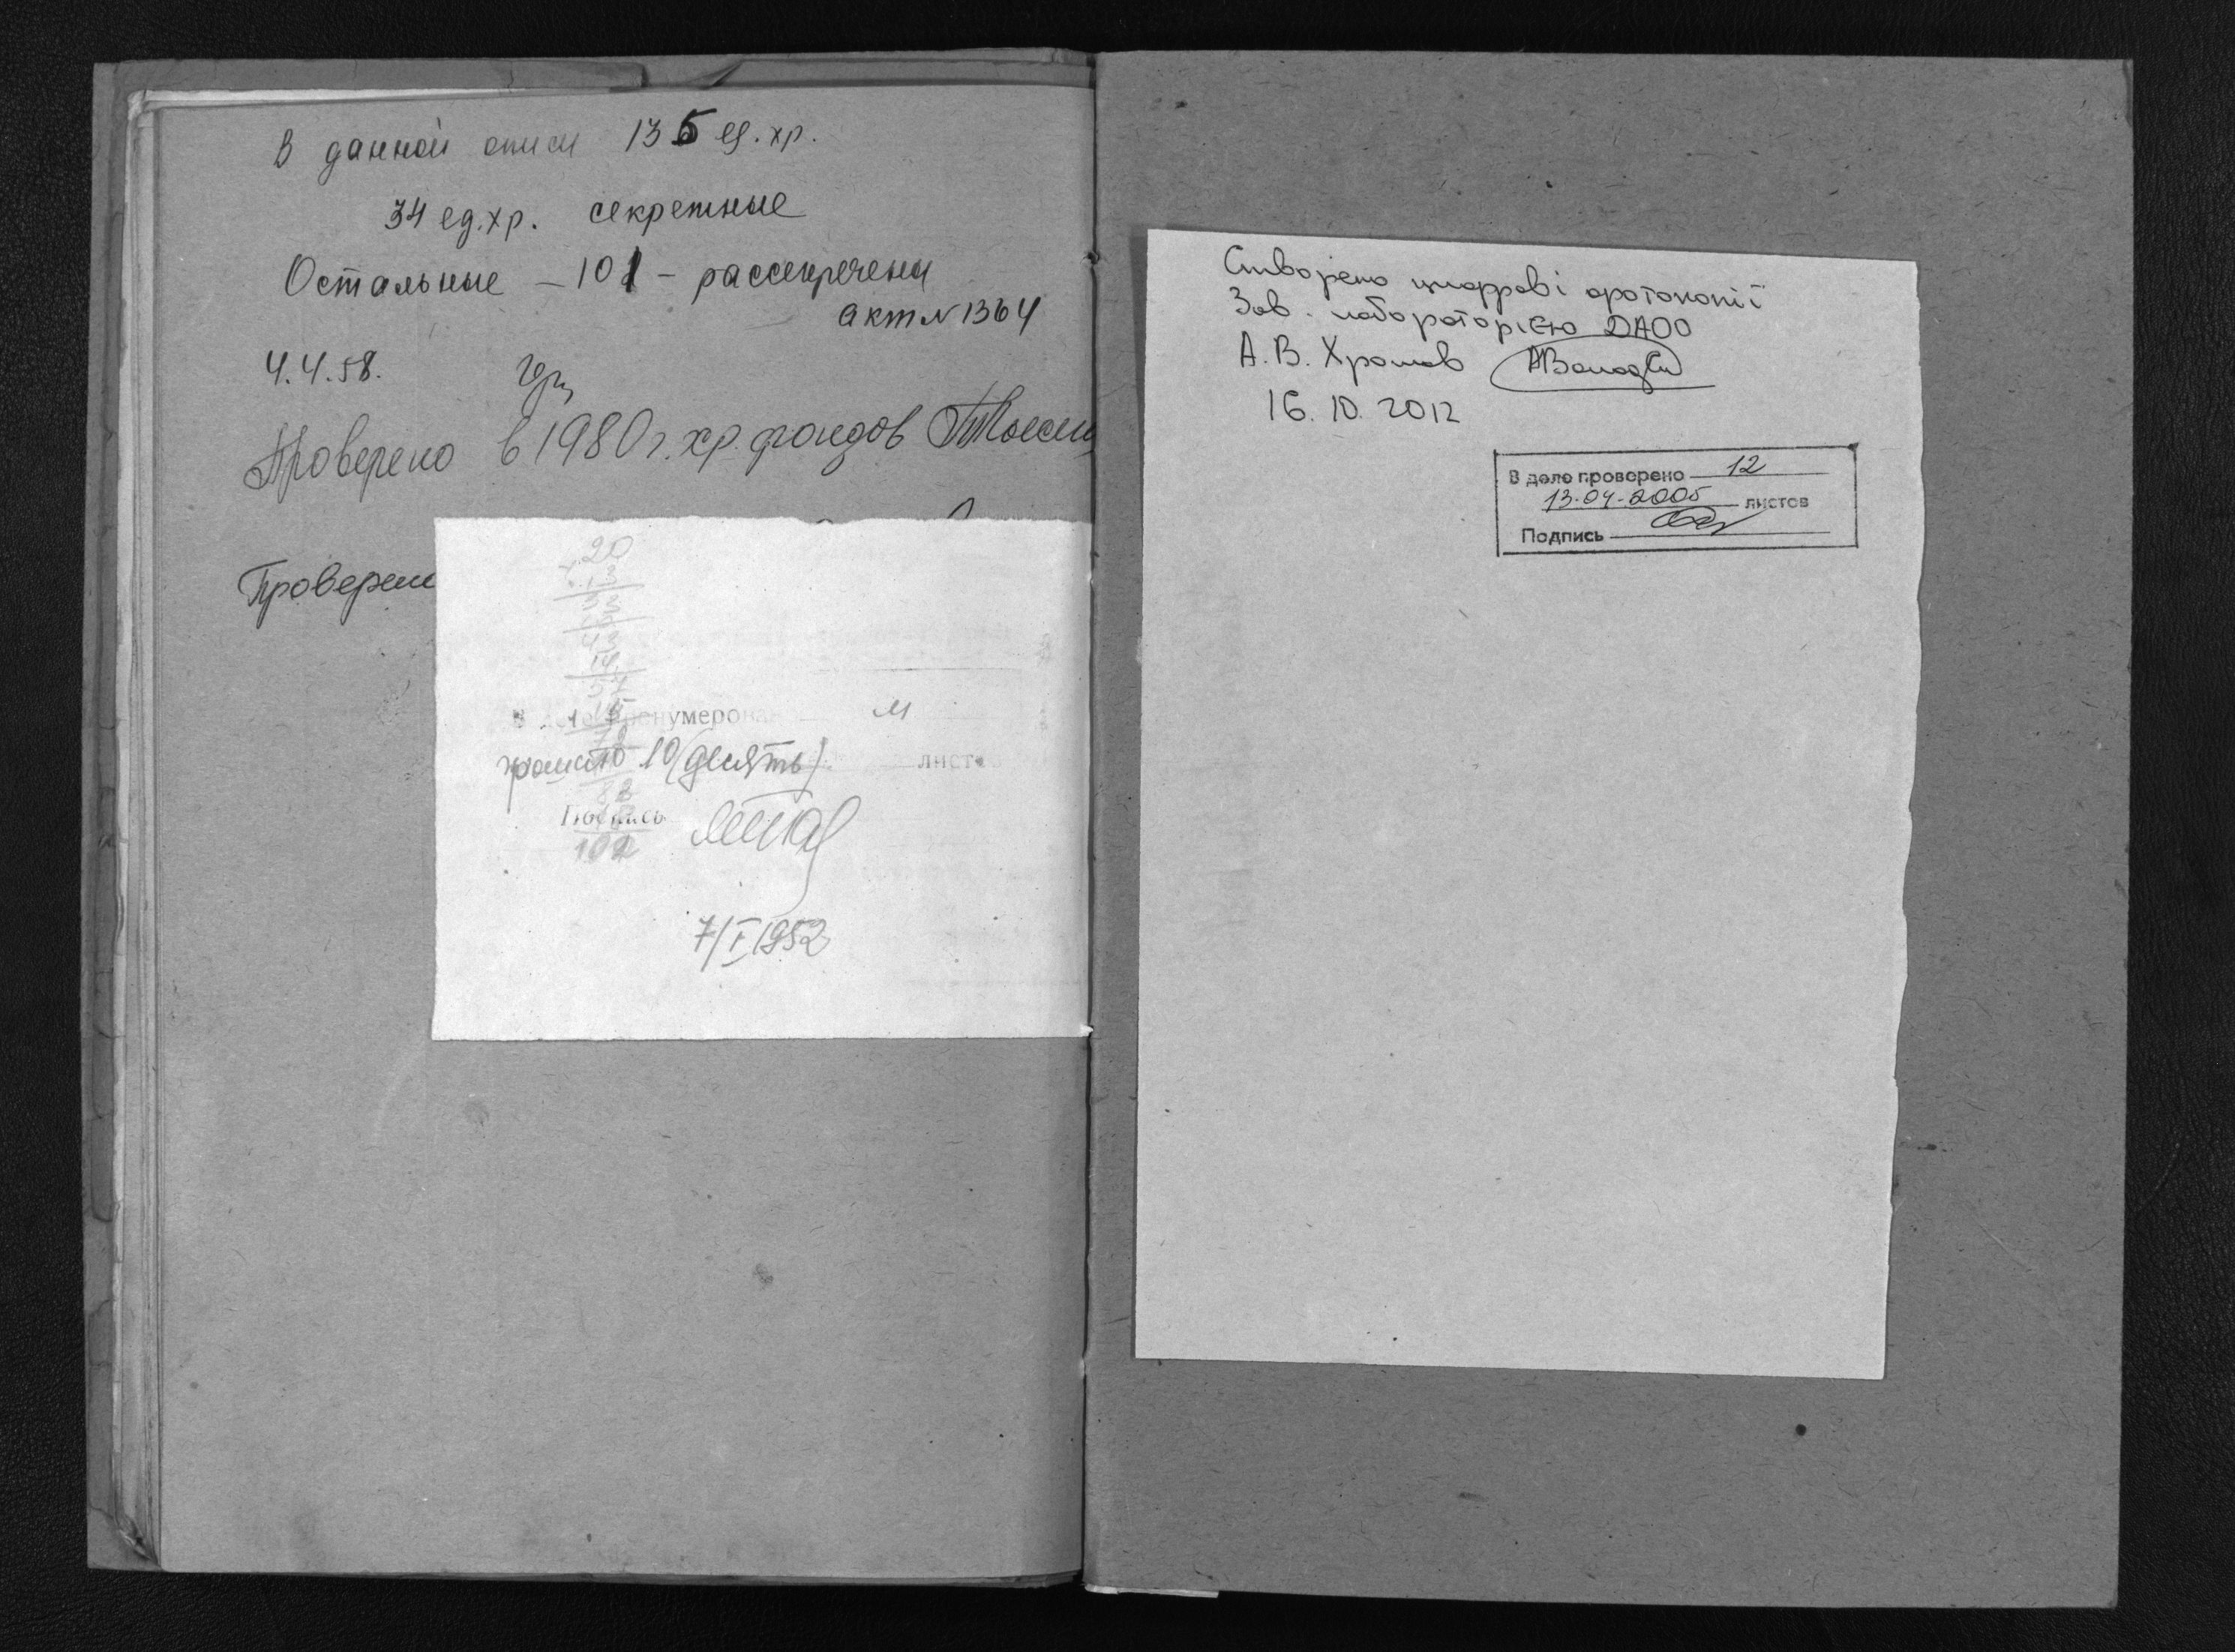 В данной описи 135 ед. хр.
34 ед. хр. секретные
Остальные – 101 – рассекречены
акт N 1364
4.4.58.
Проверено в 1980 г. хр. фондов
Провере
20
пронумерован
10 (десять) лист
Подпись
102
7/I 1952
Створено цифрові фотокопії
Зав. лабораторією ДАОО
А. В. Хромов
16. 10. 2012
В деле проверено 12
13.04.2005 листов
Подпись